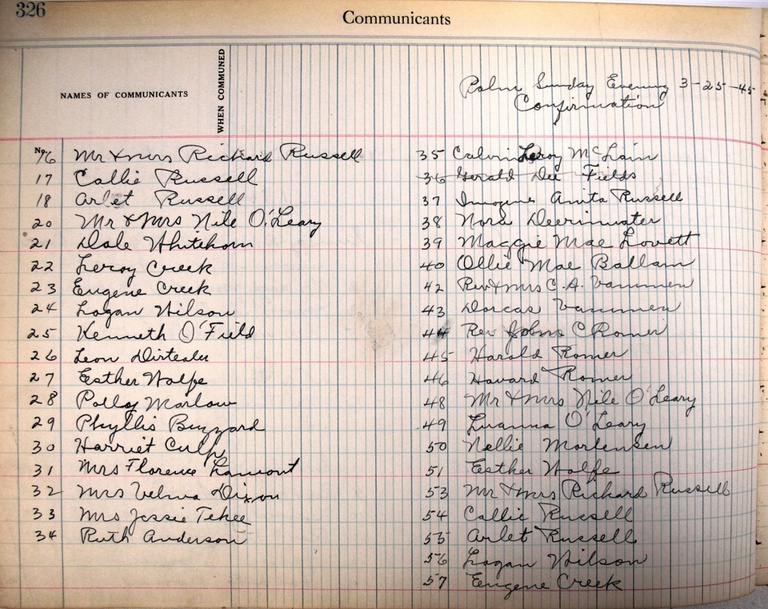 326
Communicants
NAMES OF COMMUNICANTS
WHEN COMMUNED
Palm Sunday Evening 3-25-45
Confirmation
No. 16 Mr & Mrs Richard Russell
17 Callie Russell
18 Arlet Russell
20 Mr & Mrs Nile O'Leary
21 Dale Whitehorn
22 Leroy Creek
23 Eugene Creek
24 Logan Wilson
25 Kenneth O'Field
26 Leon
27 Esther Wolfe
28 Polly Marlow
29 Phyllis Buzzard
30 Harriet Culp
31 Mrs Florence Lamont
32 Mrs Velma Dixon
33 Mrs Jessie Tehee
34 Ruth Anderson
35 Calvin Leroy McLain
36 Gerald Dee Fields
37 Imogene Anita Russell
38 Nora Deerinwater
39 Maggie Mae Lovett
40 Ollie Mae Ballam
42 Rev & Mrs C. A. Vammen
43 Dorcas Vammen
44 Rev John C Romer
45 Harold Romer
46 Havard Romer
48 Mr & Mrs Nile O'Leary
49 Luanna O'Leary
50 Nellie Mortensen
51 Esther Wolfe
53 Mr & Mrs Richard Russell
54 Callie Russell
55 Arlet Russell
56 Logan Wilson
57 Eugene Creek